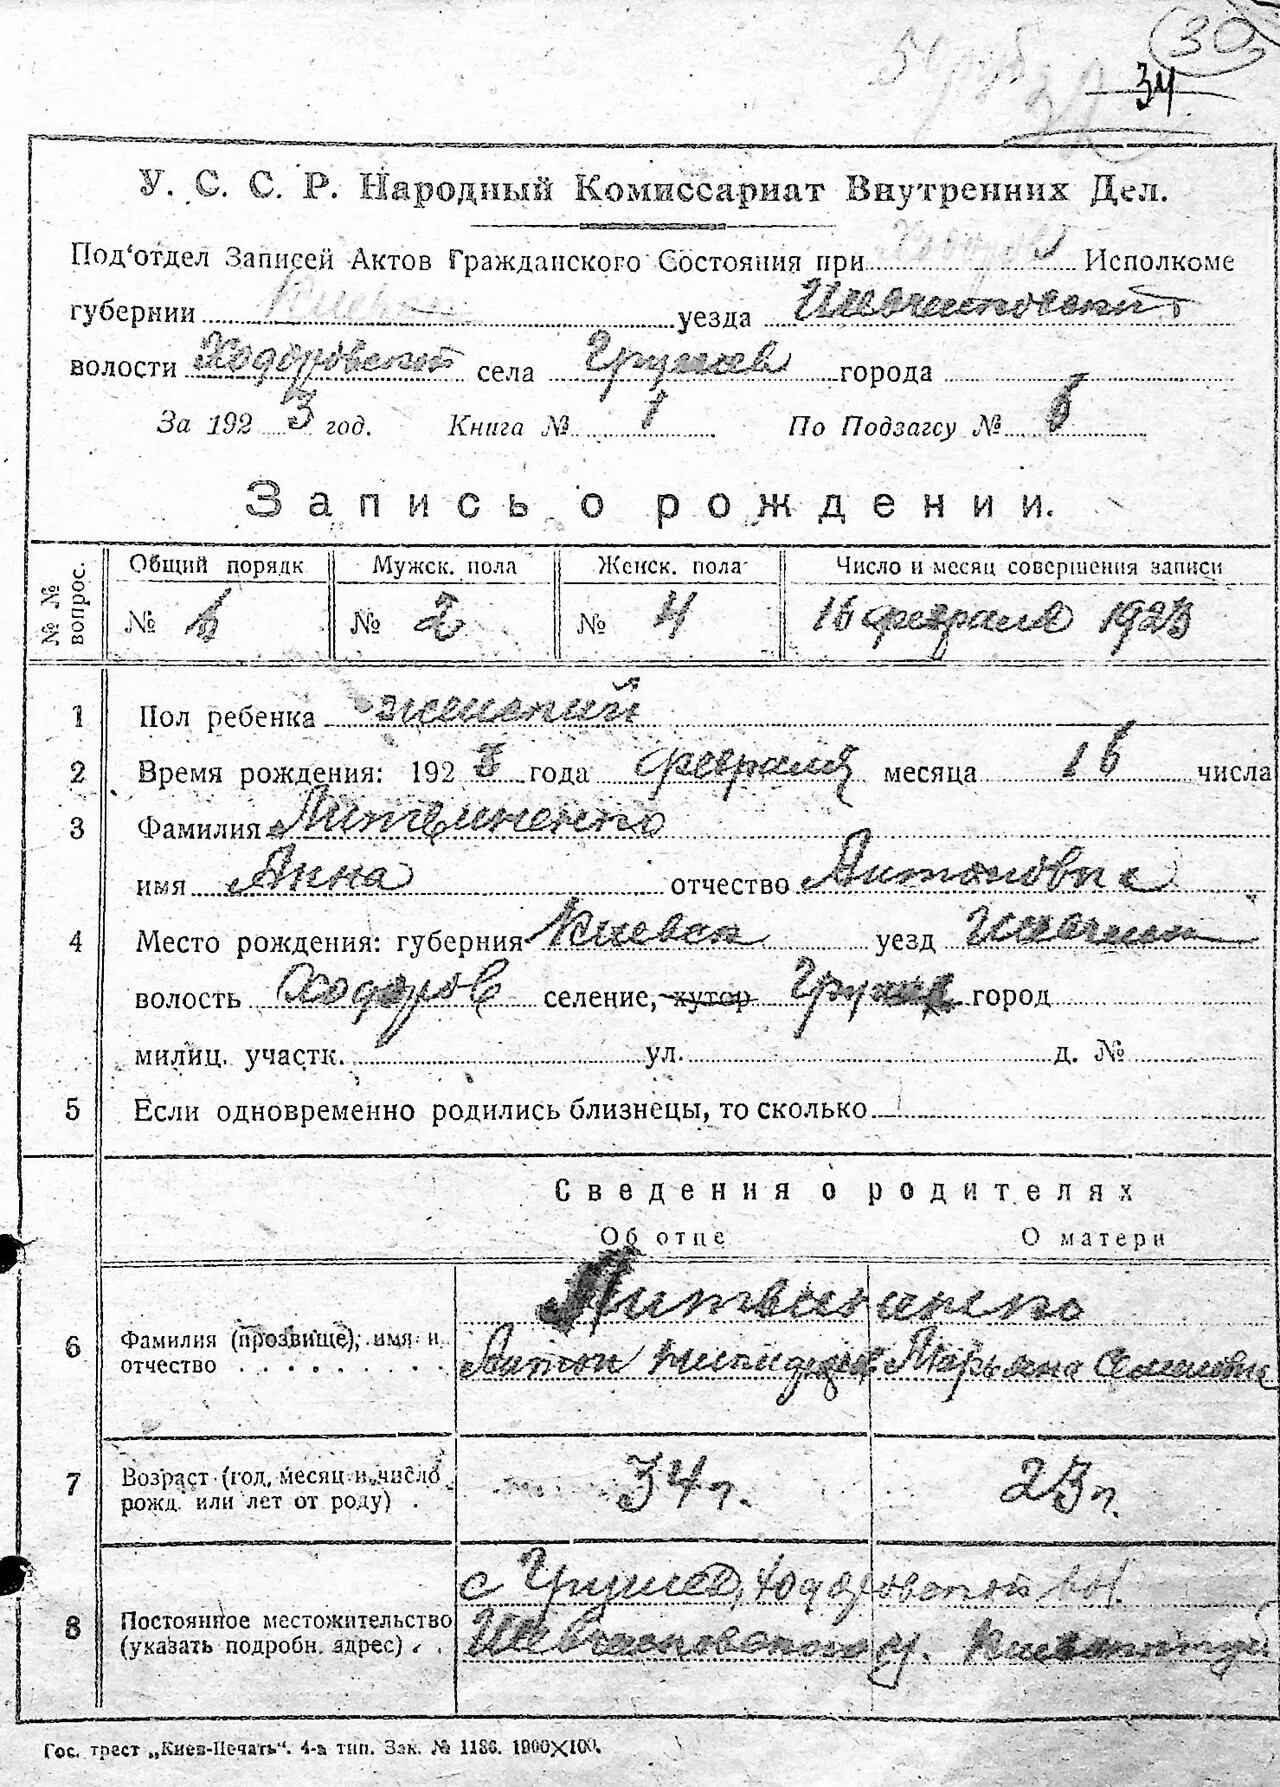 30
34
У. С. С. Р. Народный Комиссариат Внутренних Дел.
Под'отдел Записей Актов Гражданского Состояния при Исполкоме
губернии Киевск уезда Шевченковский
волости Ходоровской села Грушев города -
За 1923 год. Книга № 1 По Подзагсу № 6
Запись о рождении.
№ № вопрос. Общий порядк Мужск. пола Женск. пола Число и месяц совершения записи
№ 6 № 2 № 4 16 февраля 1923
1 Пол ребенка женский
2 Время рождения: 1923 года февраля месяца 16 числа
3 Фамилия Литвиненко
имя Анна отчество Антоновна
4 Место рождения: губерния Киевск уезд Шевченк
волость Ходоров селение, хутор Грушев город
милиц. участк. ул. д. №
5 Если одновременно родились близнецы, то сколько
Сведения о родителях
Об отце О матери
Литвиненко
6 Фамилия (прозвище), имя и отчество Антон Марьяна Семеновна
7 Возраст (год, месяц и число рожд. или лет от роду) 34 г. 23 г.
с Грушев, Ходоровской вол.
8 Постоянное местожительство (указать подробн. адрес) Шевченковского у. Киевской губ.
Гос. трест „Киев-Печать“. 4-а тип. Зак. № 1186. 1000×100.